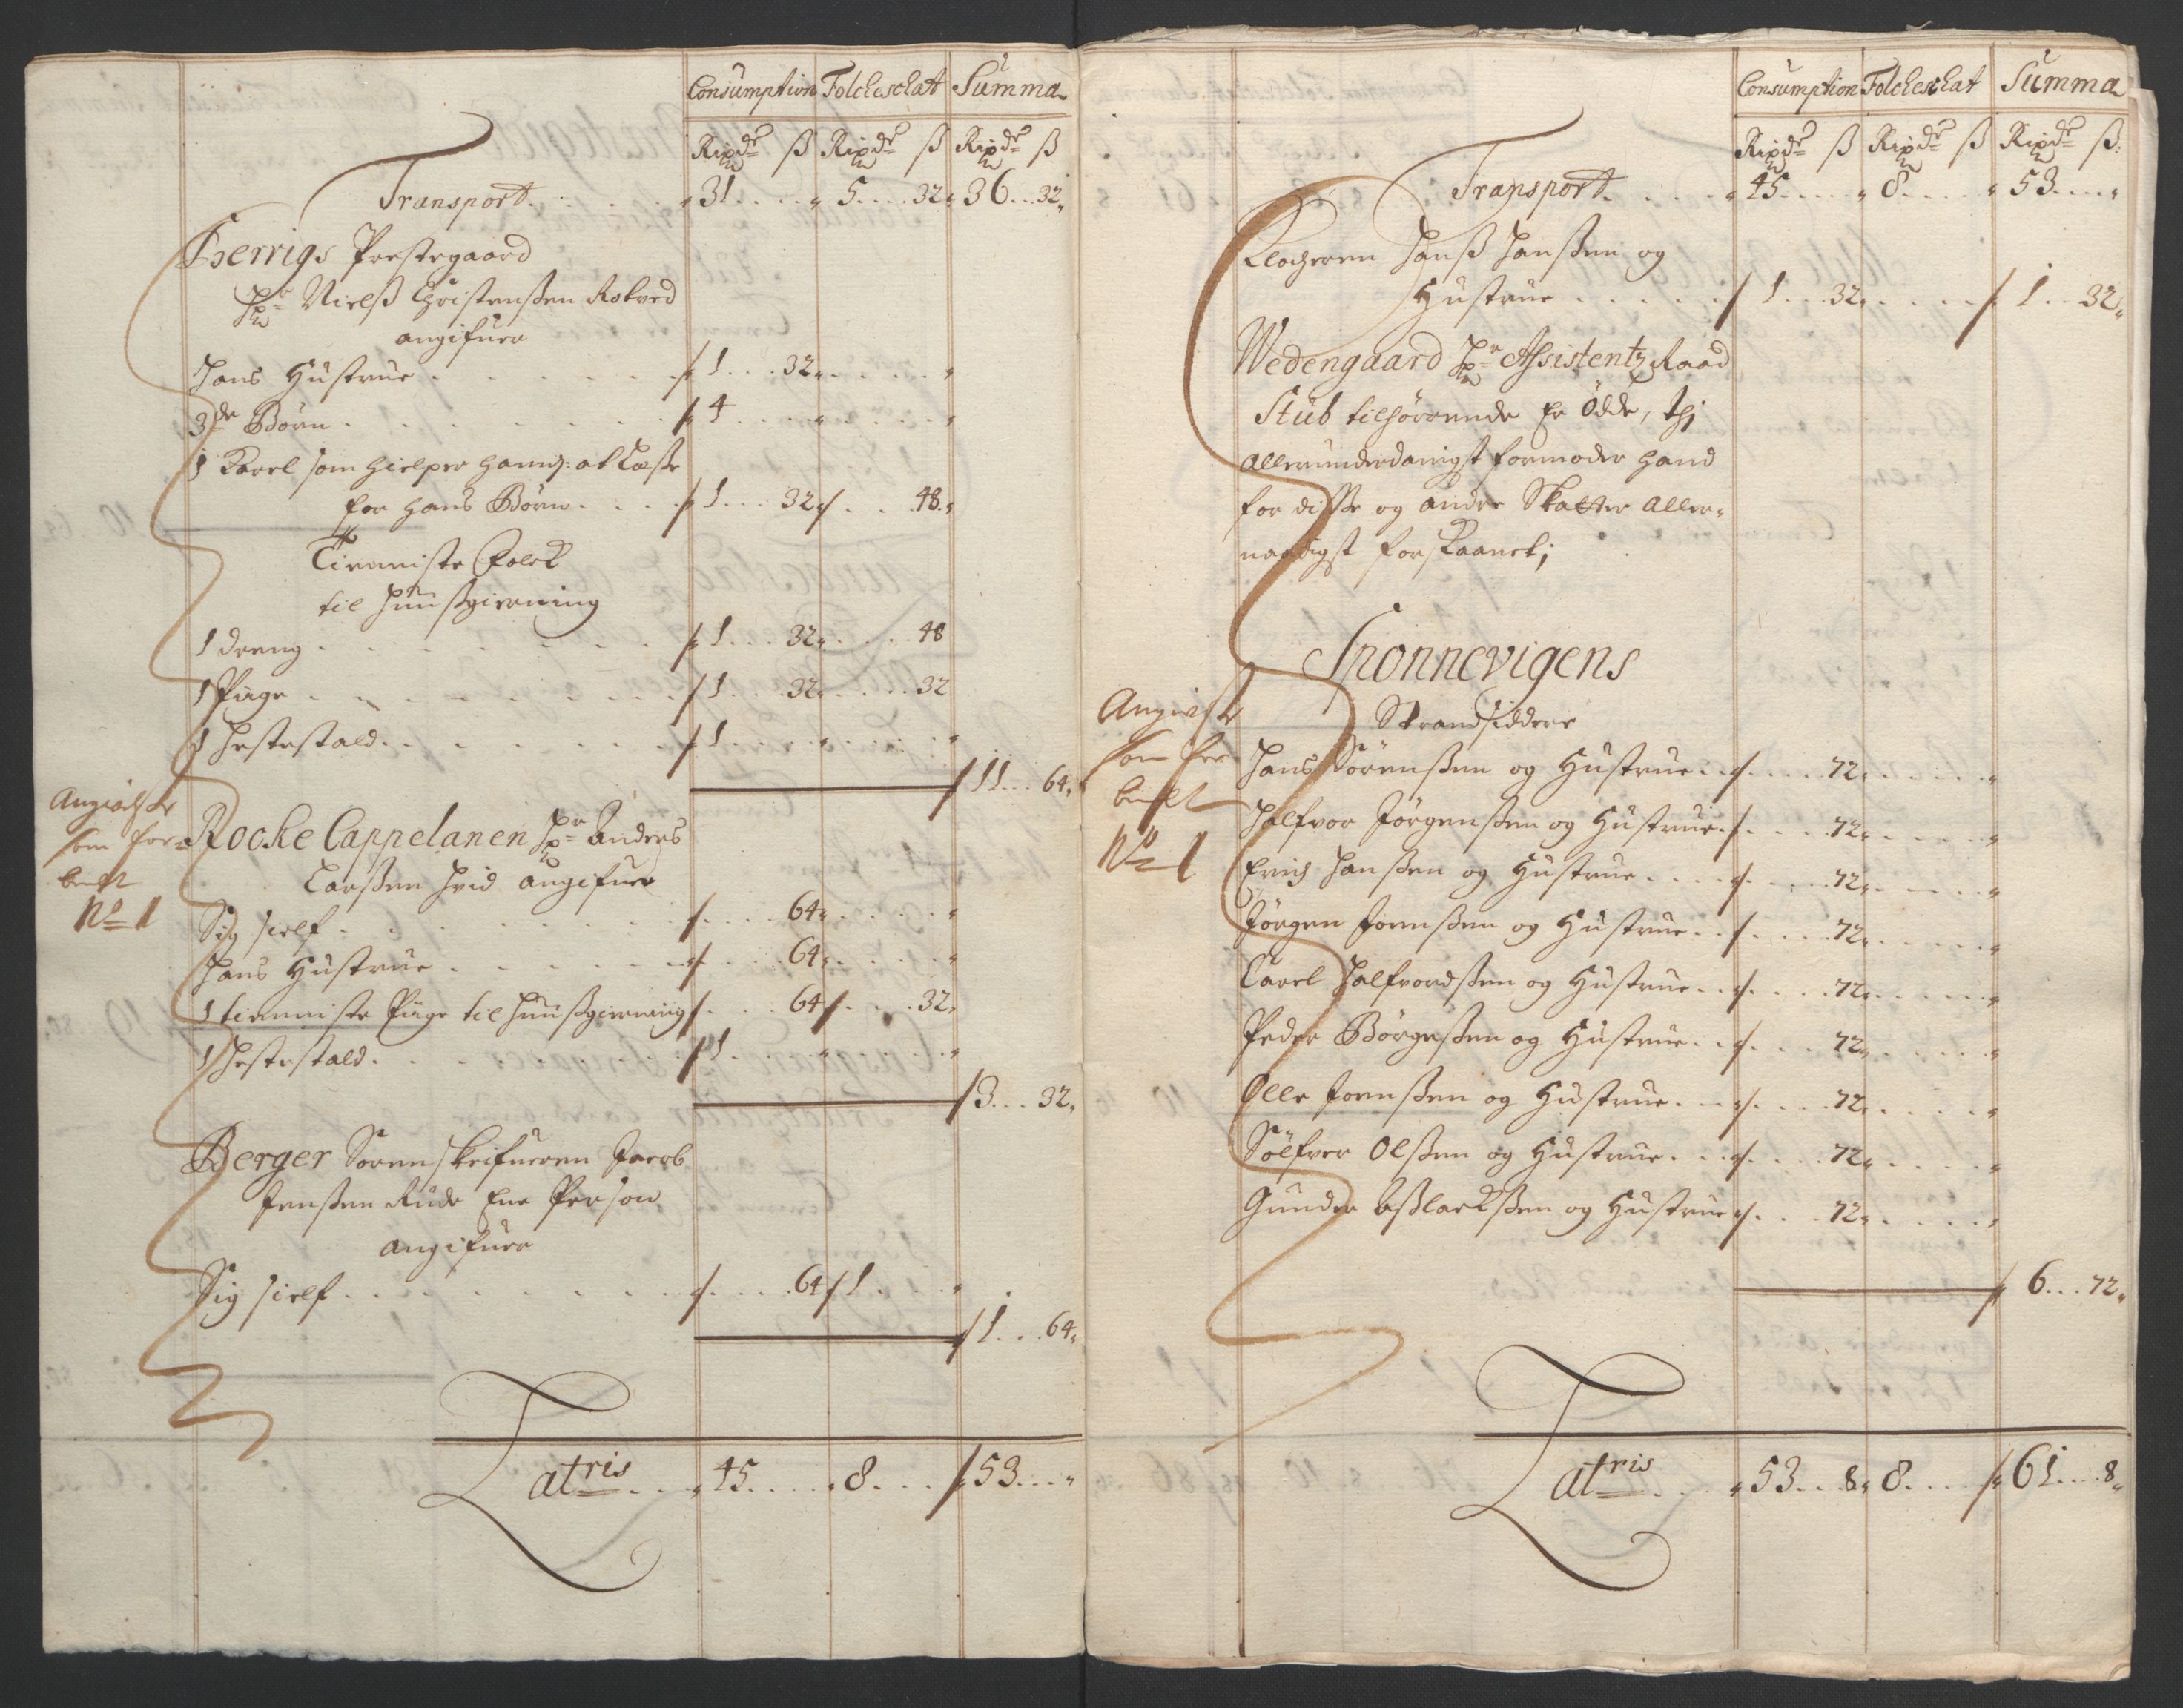 Consumption Folcheschat Summa
Rixdr ß Rixdr ß Rixdr ß
Transport. . . . . 31. . . . „ 5. . . . 32 „ 36 . . . 32 „
Fierrigs Prestegaard
Hr Nielß Christenßen Rotved
angifuer
Hans Hustrue . . . . . 1 . . . 32 „ . . . . „
3de Børn . . . . . . 4 . . . . „ . . . . „
1 Karl som hielper hannem at Læsse
for hans Børn . . . 1 . . . 32 „ . . . 48 „
Tienniste Folck
til Huußgierning
1 dreng . . . . . . 1 . . . 32 „ . . . 48
1 Pige . . . . . . . 1 . . . 32 „ . . . . 32
1 Hestestald . . . . . . 1 . . . . „ . . . . „
11 . . . 64 „
Angivelse
som for=
bemelt
No 1
Rocke Cappelanen Hr Anders
Larßen Hvid angifuer
Sig sielf . . . . . . . . . 64 „ . . . . „
Hans Hustrue . . . . . . . . . 64 „ . . . . „
1 tienniste Pige til Huußgierning . . . . 64 . . . . 32 „
1 Hestestald . . . . . 1 . . . . „ . . . . „
3 . . . 32 „
Berger Sorenskrifueren Jacob
Jenßen Rude Een Person
angifuer
Sig sielf . . . . . . . . . . 64 1 . . . . „
1 . . . 64 „
Latris . . . 45 . . . . „ 8 . . . 53 . . . „
Consumption Folcheschat Summa
Rixdr ß Rixdr ß Rixdr ß:
Transport. . . . . 45 . . . . „ 8 . . . . „ 53 . . . . „
Klocheren Hanß Hanßen og
Hustrue . . . . . 1 . . . 32 „ . . . . 1 . . 32 „
Wedengaard Hr Assistentz Raad
Stub tilhørende Er Øde, thj
allerunderdanigst formoder hand
for disse og andre Skatter aller=
naadigst forskaanet;
Angivelse
som for
bemelt
No 1
Snonnevigens
Strandsiddere
Hans Sørenßen og Hustrue . . . . . . 72 „ . . . . . „
Halfvor Jørgenßen og Hustrue . . . . . 72 „ . . . . . „
Erich Hanßen og Hustrue . . . . . . . 72 „ . . . . . „
Jørgen Joenßen og Hustrue . . . . . . 72 „ . . . . . „
Carel Halfvordßen og Hustrue . . . . . . 72 „ . . . . . „
Peder Børgeßen og Hustrue . . . . . . 72 „ . . . . . „
Olle Joenßen og Hustrue . . . . . . . 72 „ . . . . . „
Sølfver Olßen og Hustrue . . . . . . . 72 „ . . . . . „
Gunder Aßlackßen og Hustrue . . . . 72 „ . . . . . „
6 . . . 72 „
Latris . . . 53 . . . 8 „ 8 . . . . 61 . . . . 8 „